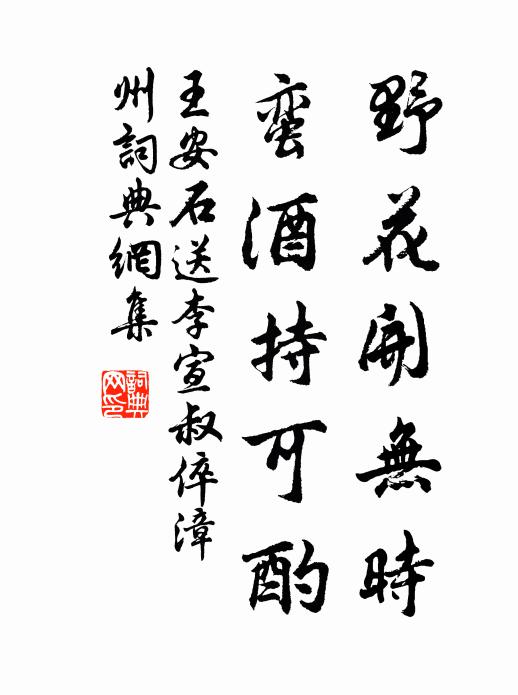 野花開無時
蛮酒持可酌
王安石送李宣叔倅漳
州詞典網集
詞典
网印